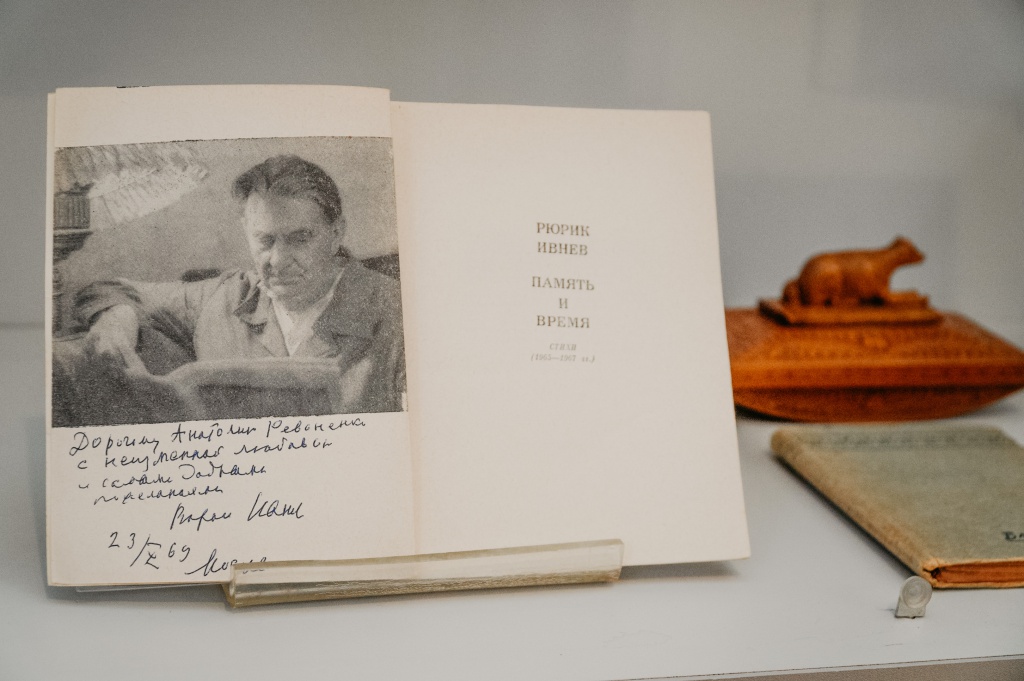 Дорогому Анатолию Ревоненко
с неизменной любовью
и самыми добрыми
пожеланиями
Рюрик Ивнев
23/X 69
РЮРИК
ИВНЕВ
ПАМЯТЬ
И
ВРЕМЯ
СТИХИ
(1965—1967 гг.)